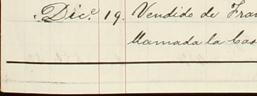 Dic.e 19. Vendido de Fran
llamada la Cas